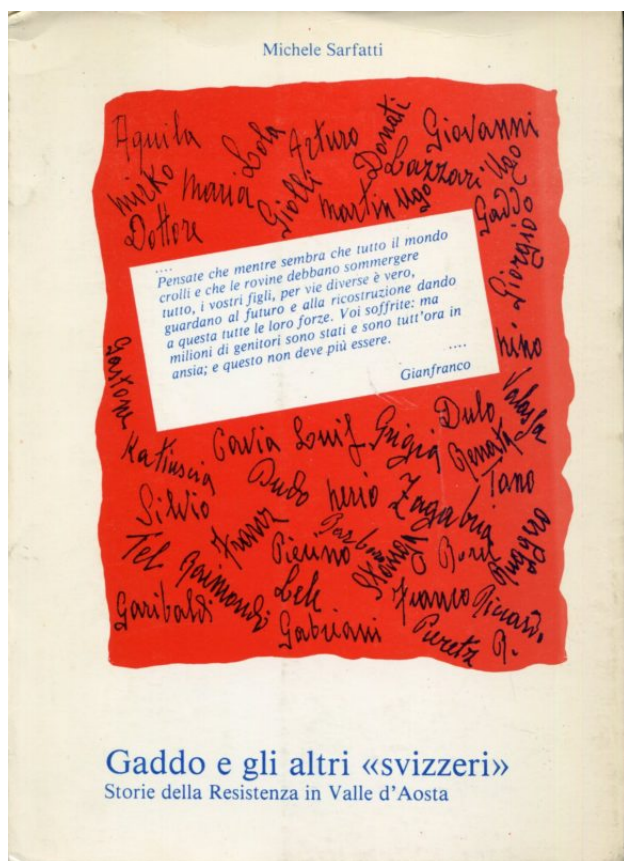 Michele Sarfatti
Aquila
Mirko
Maria
Lola
Arturo
Donati
Giovanni
Dottore
Giolli
Martin
Ugo
Lazzari
Ugo
Gaddo
Giorgio
....
Pensate che mentre sembra che tutto il mondo
crolli e che le rovine debbano sommergere
tutto, i vostri figli, per vie diverse è vero,
guardano al futuro e alla ricostruzione dando
a questa tutte le loro forze. Voi soffrite: ma
milioni di genitori sono stati e sono tutt'ora in
ansia; e questo non deve più essere.
....
Gianfranco
Gastone
Nino
Katiuscia
Cavia
Luif
Grigia
Dulo
Renata
Silvio
Dudo
Nerio
Zagabria
Tano
Tel
Franz
Picino
Ruggero
Garibaldi
Raimondi
Lele
Franco
Gabriani
R.
Gaddo e gli altri «svizzeri»
Storie della Resistenza in Valle d'Aosta